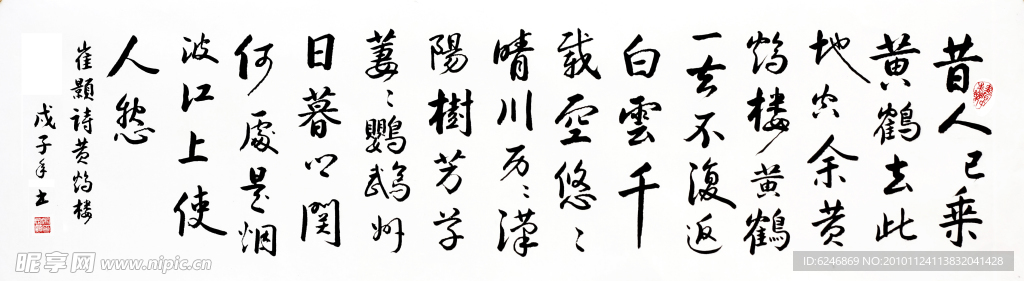 昔人已乗
黄鶴去此
地空余黄
鹤楼黄鶴
一去不復返
白雲千
載空悠々
晴川历々漢
陽樹芳草
萋々鹦鵡州
日暮乡関
何處是烟
波江上使
人愁
崔顥詩黄鹤楼
戊子年书
昵享网 www.nipic.cn
ID:6246869 NO:20101124113832041428